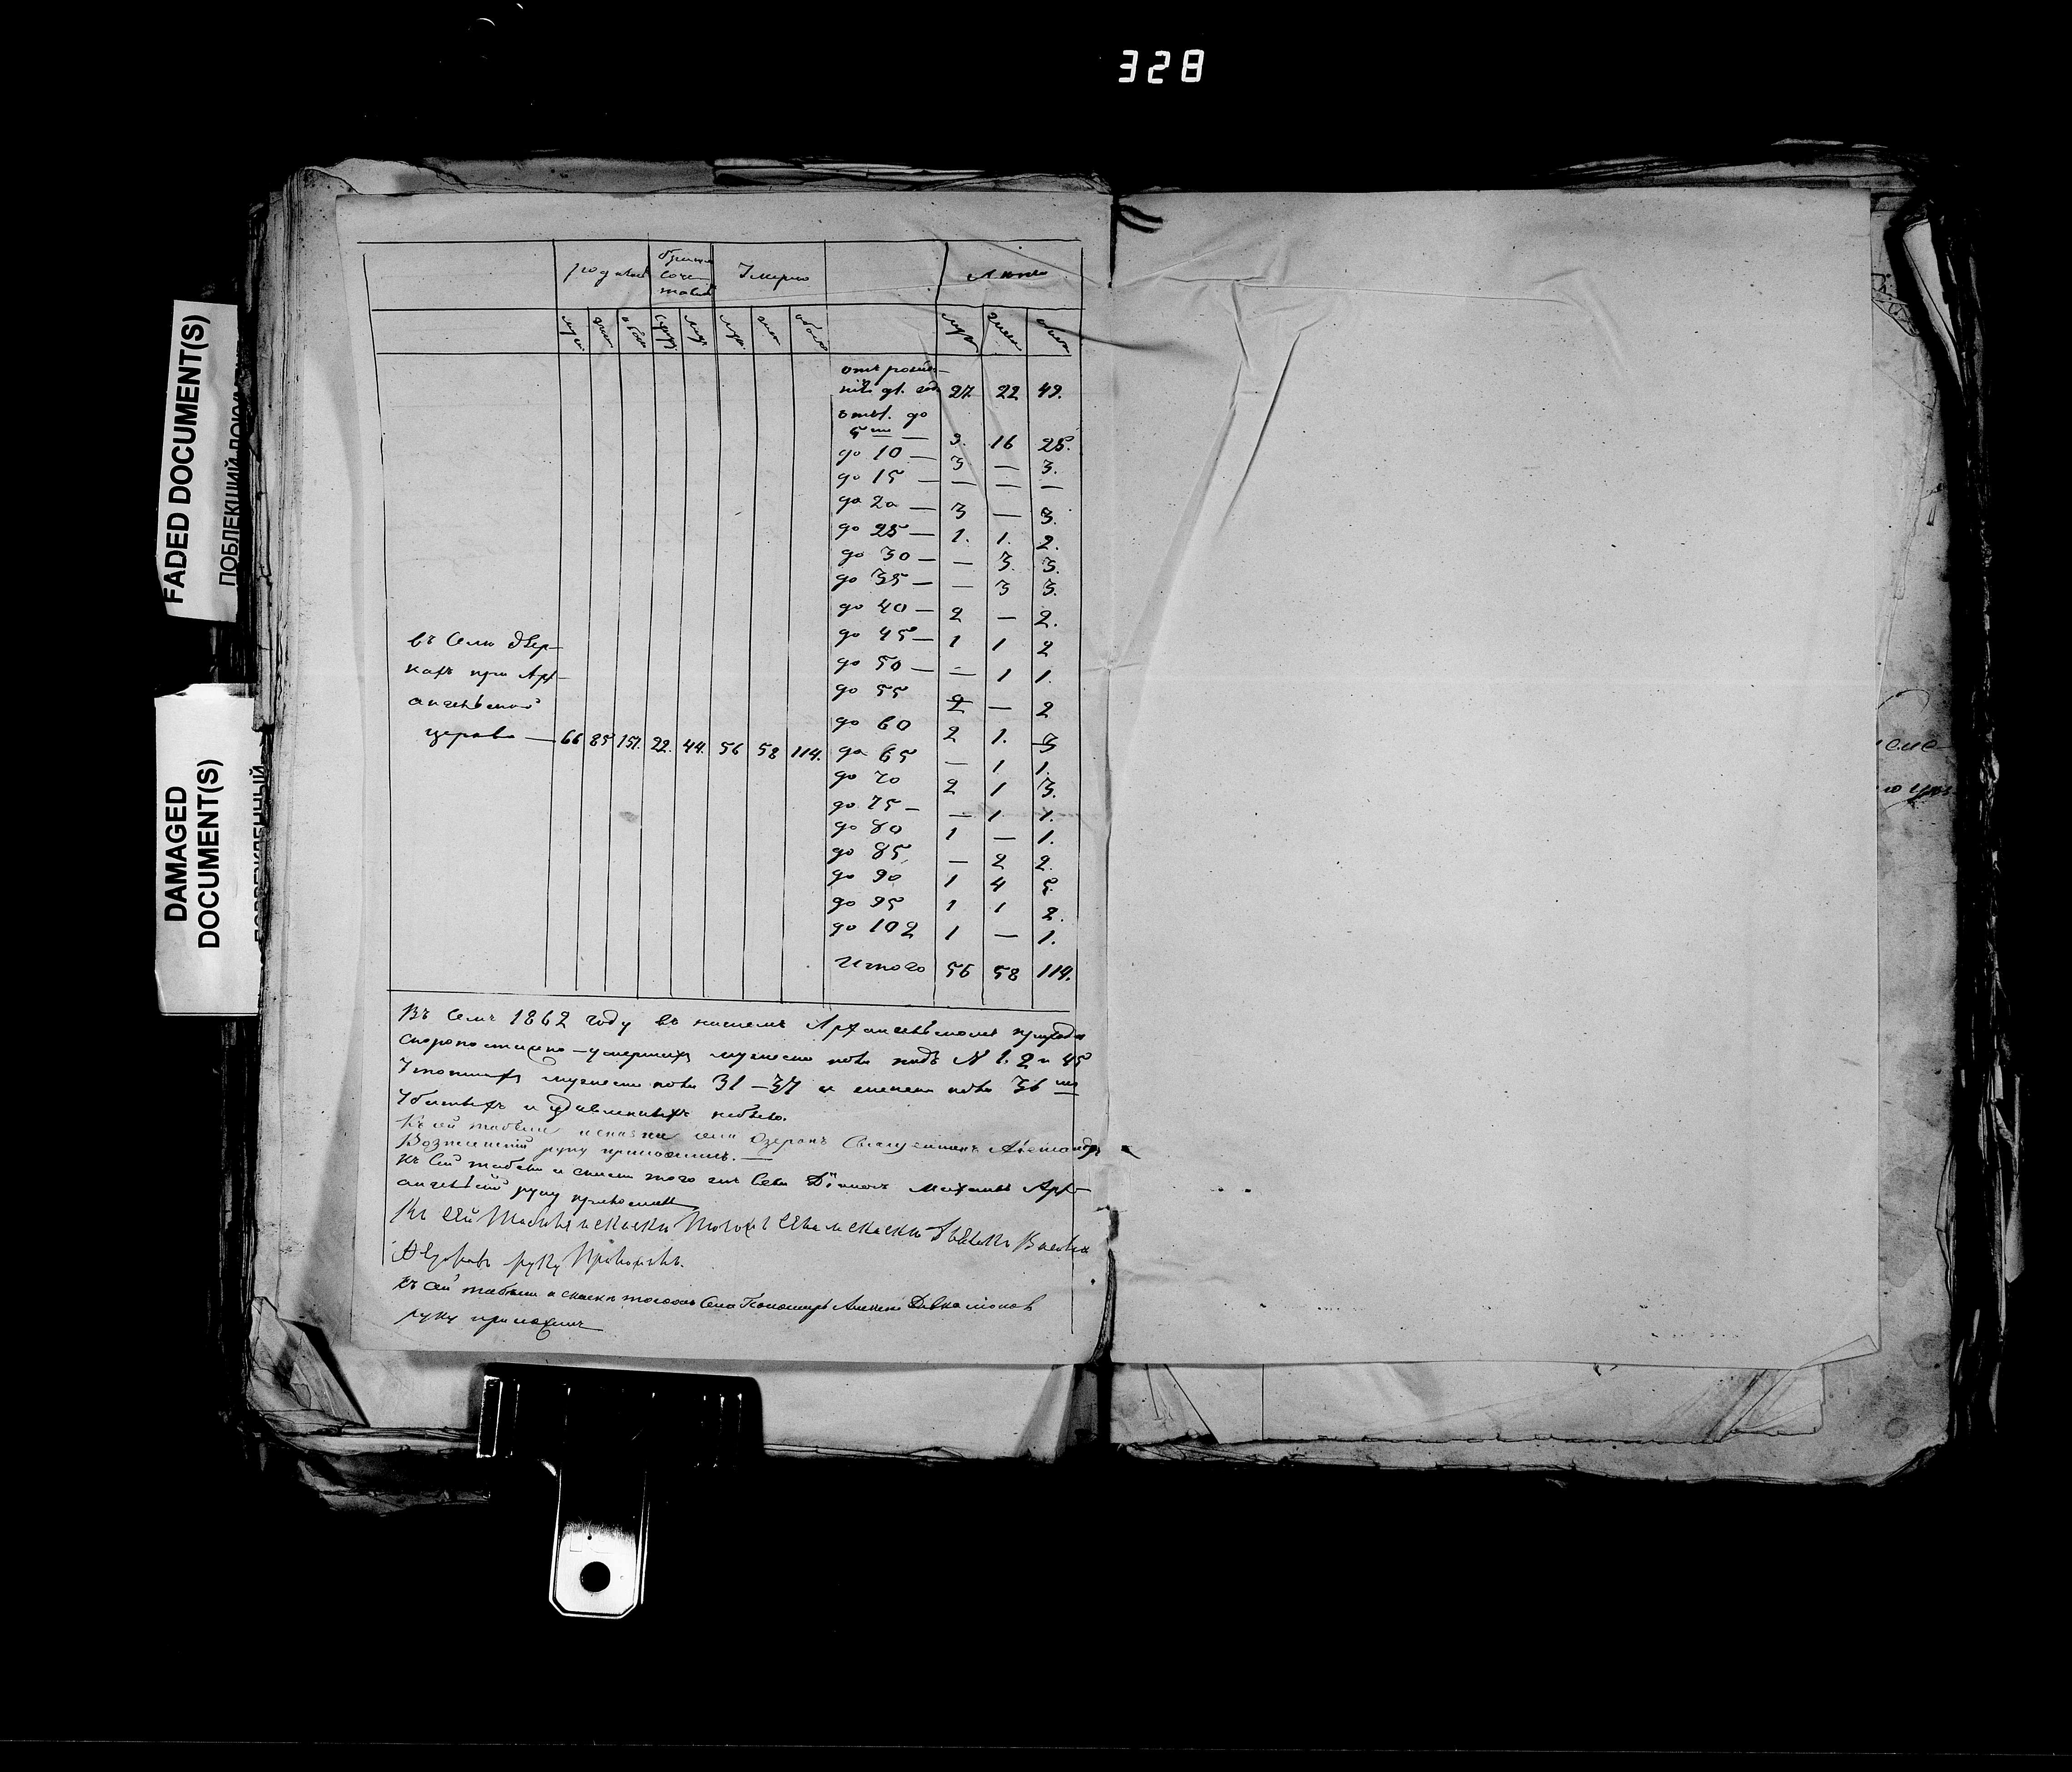 328
FADED DOCUMENT(S)
DAMAGED
DOCUMENT(S)
родилось
браком
соче-
талось
Умерло
Лета
муж
жен
обоего
муж
жен
обоего
муж
жен
обоего
отъ рожде-
нія до год. 27. 22 49.
отъ 1. до
5ти — 9. 16 25.
до 10 — 3 — 3.
до 15 — — — —
до 20 — 3 — 3.
до 25 — 1. 1. 2.
до 30 — — 3. 3.
до 35 — — 3 3.
до 40 — 2 — 2.
до 45 — 1 1 2
до 50 — — 1 1.
до 55 2 — 2
до 60 2 1. 3
до 65 — 1 1.
до 70 2 1 3.
до 75 — — 1. 1.
до 80 1 — 1.
до 85 — 2 2.
до 90 1 4 5.
до 95 1 1 2.
до 102 1 — 1.
Итого 56 58 114.
въ Селе Озер-
кахъ при Арх-
ангельской
церкви — 66 85 151. 22. 44. 56 58 114.
Въ семъ 1862 году въ нашемъ Архангельскомъ приходе
скоропостижно-умершихъ мужеска пола подъ N 1. 2 и 45
Утопшихъ мужеска пола 31 — 37 и женска пола 36
Убитыхъ и удавленныхъ небыло.
Къ сей табели и сказке села Озерокъ Священникъ
руку приложилъ. —
Къ сей табели и сказке того жъ Села Діаконъ Михаилъ Арх-
ангельскій руку приложилъ
Къ сей Табели и сказки тогожъ Села
руку Приложилъ.
Къ сей табели и сказки тогожъ Села Пономарь Алексей
руку приложилъ